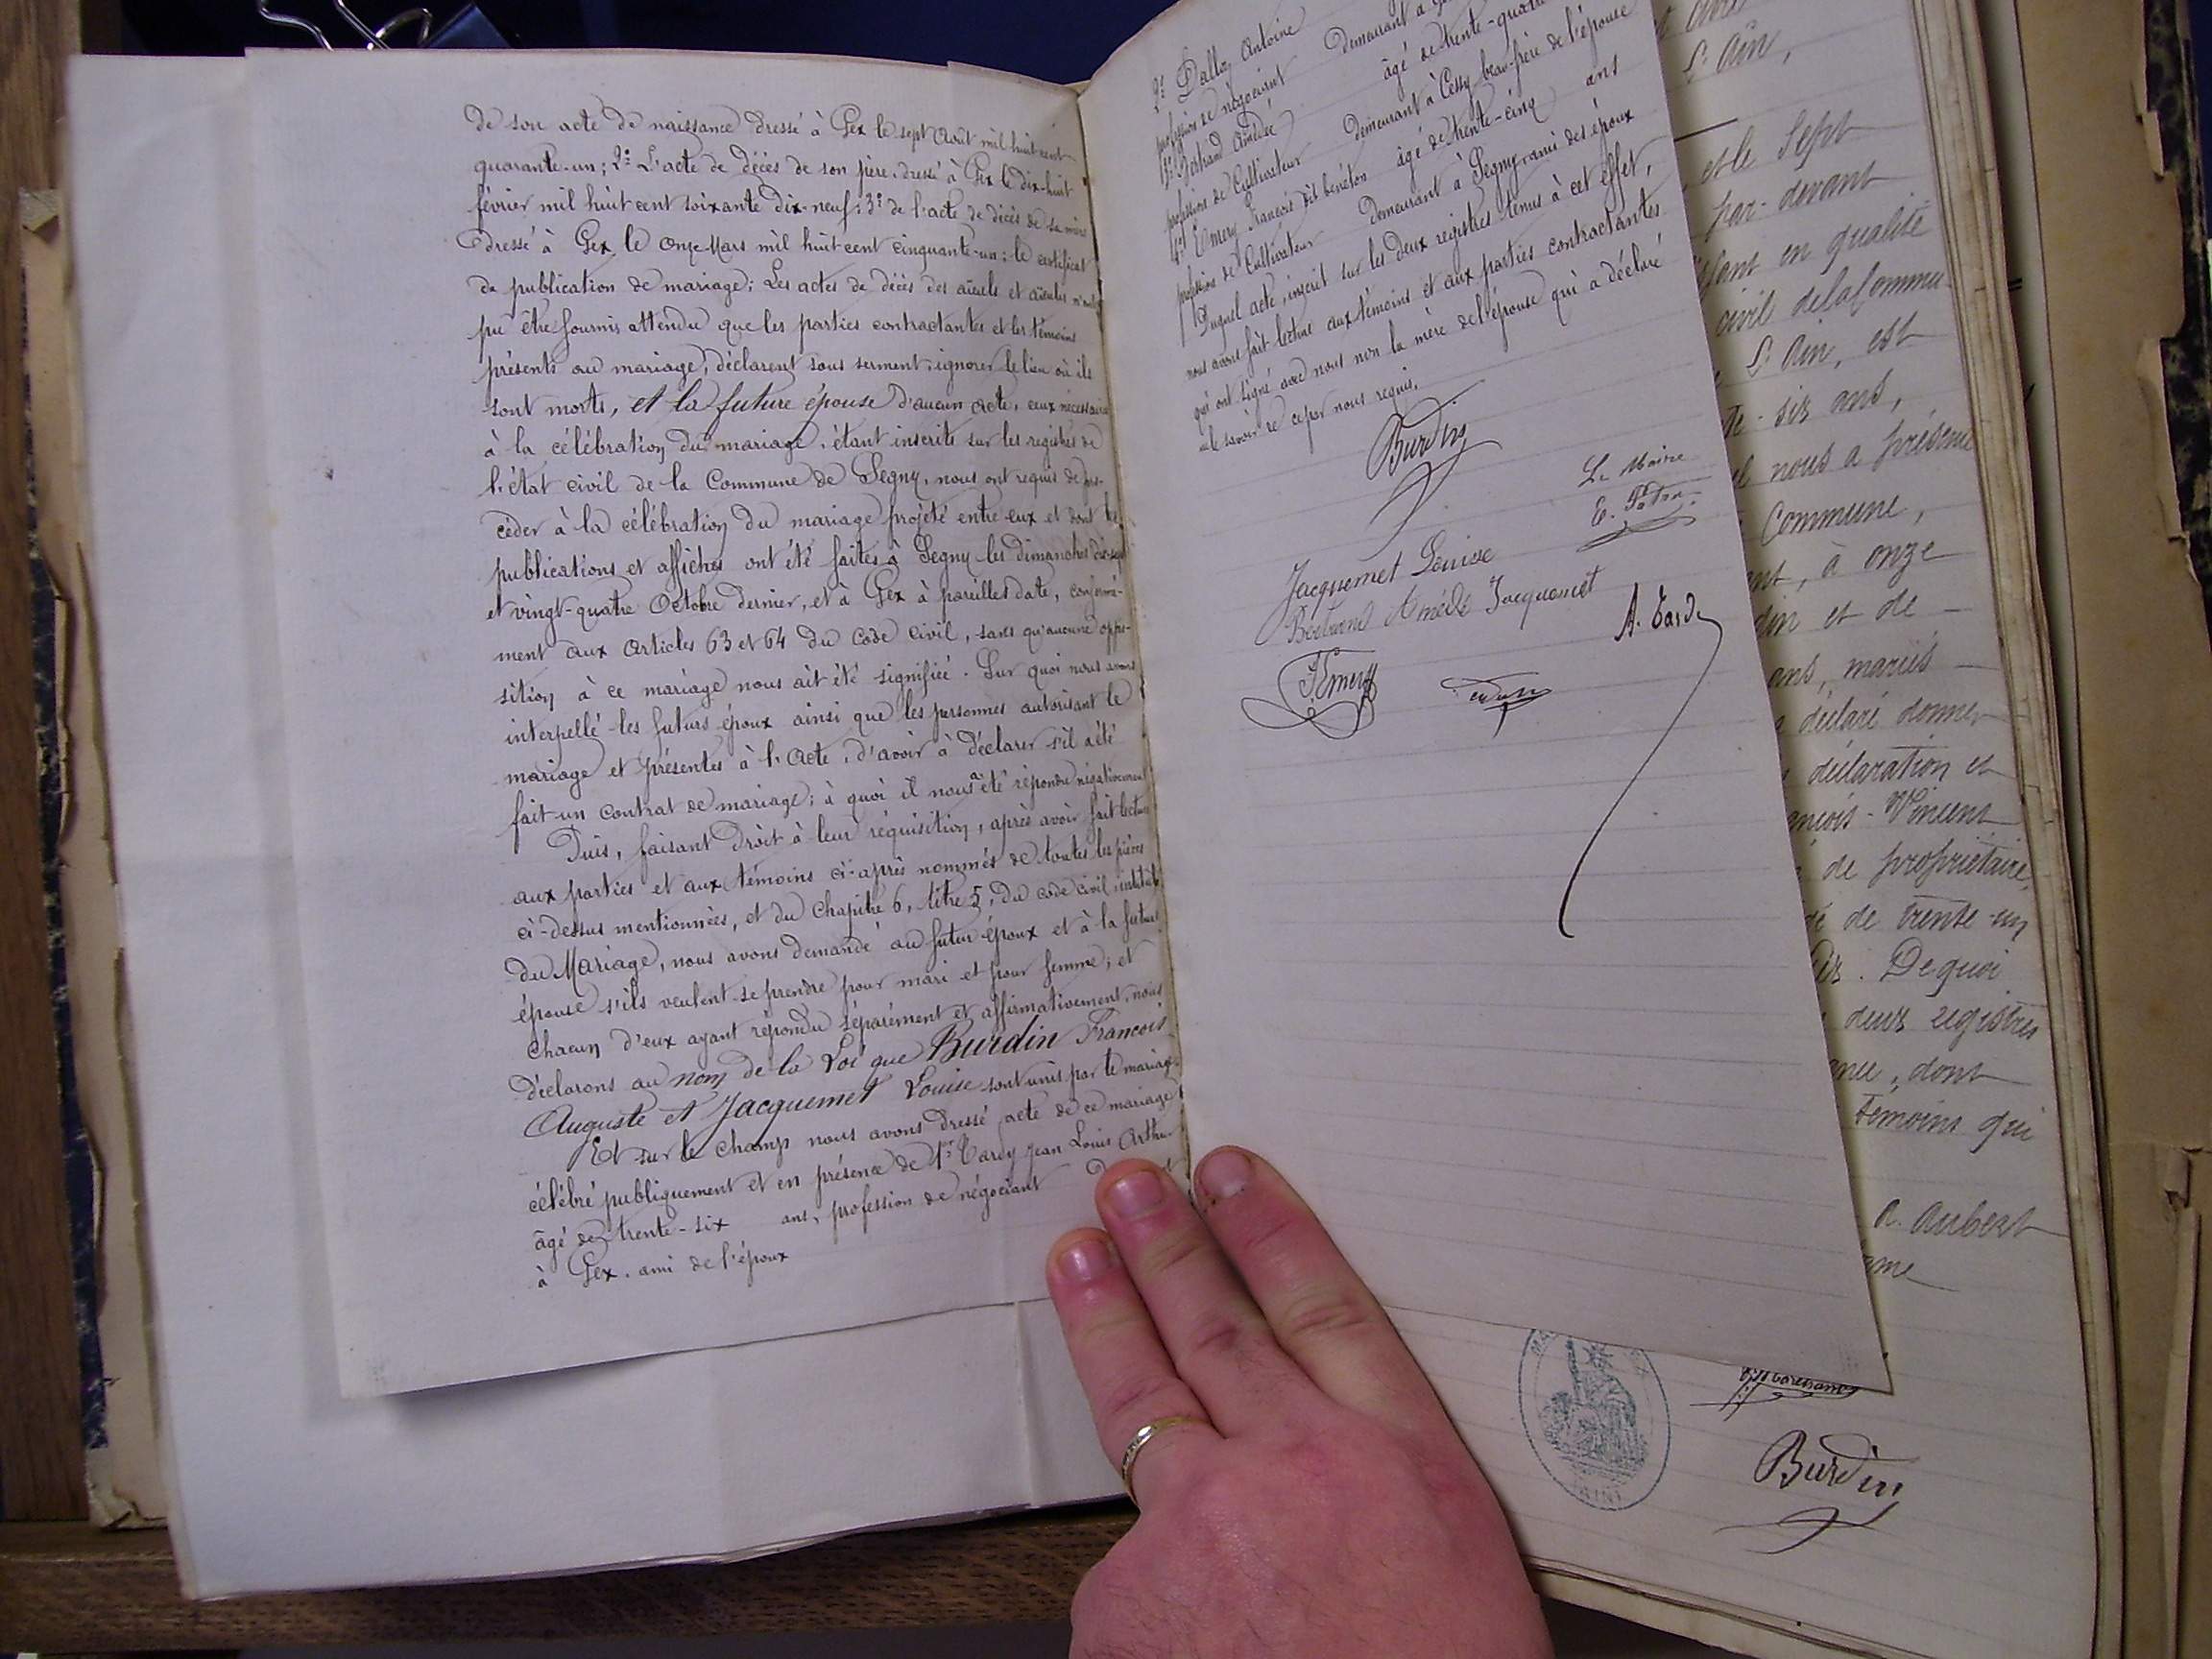 de son acte de naissance dressé à Gex le sept Août mil huit cent
quarante-un; 2º L'acte de décès de son père, dressé à Gex le dix-huit
février mil huit cent soixante dix-neuf; 3º de l'acte de décès de sa mère
dressé à Gex le onze Mars mil huit cent cinquante-un; le certificat
de publication de mariage; Les actes de décès des aïeuls et aïeules n'ont
pu être fournis attendu que les parties contractantes et les témoins
présents au mariage, déclarent sous serment, ignorer le lieu où ils
sont morts, et la future épouse d'aucun acte, ceux nécessaires
à la célébration du mariage, étant inscrits sur les registres de
l'état civil de la Commune de Segny, nous ont requis de pro-
céder à la célébration du mariage projeté entre eux et dont les
publications et affiches ont été faites à Segny les dimanches dix-sept
et vingt-quatre Octobre dernier, et à Gex à pareilles date, conformé-
ment aux Articles 63 et 64 du Code Civil, sans qu'aucune oppo-
sition à ce mariage nous ait été signifiée. Sur quoi nous avons
interpellé les futurs époux ainsi que les personnes autorisant le
mariage et présentes à l'Acte, d'avoir à déclarer s'il a été
fait un contrat de mariage; à quoi il nous a été répondu négativement
Puis, faisant droit à leur réquisition, après avoir fait lecture
aux parties et aux témoins ci-après nommés de toutes les pièces
ci-dessus mentionnées, et du Chapitre 6, titre 5, du code civil, intitulé
du Mariage, nous avons demandé au futur époux et à la future
épouse s'ils veulent se prendre pour mari et pour femme; et
chacun d'eux ayant répondu séparément et affirmativement, nous
déclarons au nom de la Loi que Burdin François
Auguste et Jacquemet Louise sont unis par le mariage.
Et sur le champ nous avons dressé acte de ce mariage
célébré publiquement et en présence de 1º Tardy Jean Louis Arthur
âgé de trente-six ans, profession de négociant
à Gex, ami de l'époux
2º Dalloz Antoine
profession de négociant demeurant à
3º Bertrand Amédée âgé de trente-quatre
profession de Cultivateur demeurant à Cessy beau-frère de l'épouse
4º Emery François dit benéton âgé de trente-cinq ans
profession de Cultivateur demeurant à Segny ami des époux
Duquel acte, inscrit sur les deux registres tenus à cet effet,
nous avons fait lecture aux témoins et aux parties contractantes
qui ont signé avec nous non la mère de l'épouse qui a déclaré
ne le savoir de ce par nous requis.
Burdin
Le Maire
Jacquemet Louise
Bertrand Amédé Jacquemet
A. Tardy
F Emery
et le Sept
par-devant
en qualité
civil de la Commu-
L'Ain, est
-six ans,
nous a présenté
Commune,
à onze
et de
ans, mariés
déclaré donner
déclaration et
- Vincent
de propriétaire,
de trente-un
. De quoi
deux registres
, dont
témoins qui
a. Aubert
Burdin